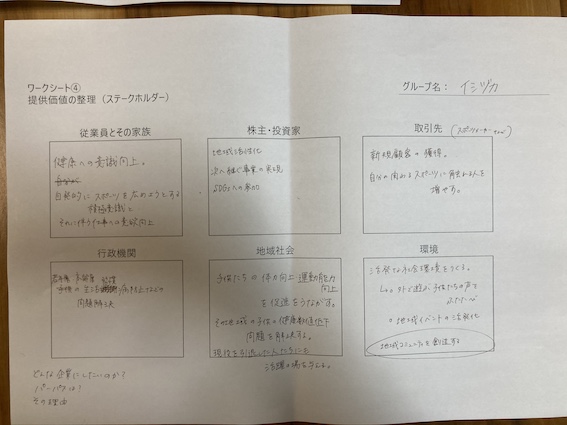 ワークシート④
提供価値の整理（ステークホルダー）
グループ名： イシヅカ
従業員とその家族
健康への意識向上。
自発的にスポーツを広めようとする
積極意識と
それに伴う仕事への意欲向上
株主・投資家
地域活性化
次へ継ぐ事業の実現
SDGsへの参加
取引先
新規顧客の獲得。
自分の関わるスポーツに触れる人を
増やす。
行政機関
問題解決
地域社会
子供たちの体力向上 運動能力
向上
を促進をうながす。
の子供の健康数値低下
問題を解決する。
現役を引退した人たちにも
活躍の場を与える。
環境
活発な社会環境をつくる。
外で遊ぶ子供たちの声を
ふたたび
地域イベントの活発化
地域コミュニティを創造する
どんな企業にしたいのか？
パーパスは？
その理由